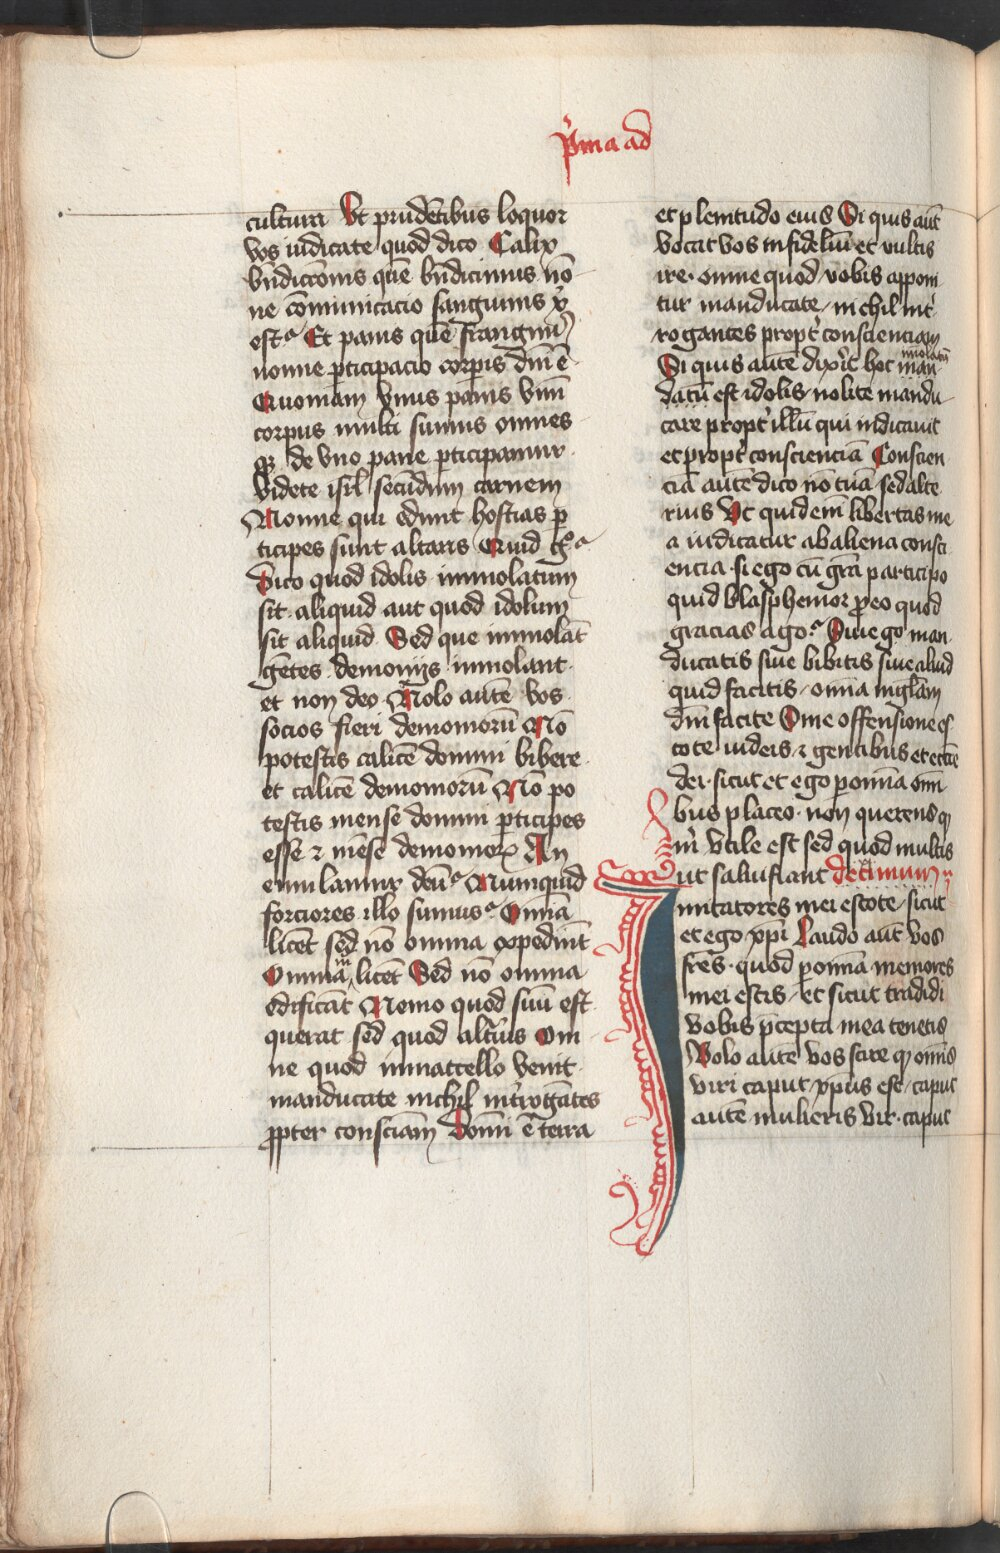 p̓ma ad
cultura Vt prudētibus loquor
vos iudicate quod dico Calix
bn̄dicc̄onis quē bn̄dicimus nō
ne cōmunicacio sanguinis xp̄i
est? Et panis quē frangim9
nonne ꝑticipacio corpīs dn̄i ē
Quoniam vnus panis vnū
corpus multi sumus omnes
qꝫ de vno pane ꝑticipamur
Videte isrl̄ secūdum carnem
Nonne qui edunt hostias ꝑ
ticipes sunt altaris Quid g̊ ?
Dico quod idolis immolatum
sit aliquid aut quod idolum
sit aliquid Sed que immolāt
gētes demonijs immolant
et non deo Nolo autē vos
socios fieri demoniorū Nō
potestis calicē domini bibere
et calicē demoniorū Nō po
testis mense domini ꝑticipes
esse ⁊ mēse demonioꝝ An
emulamur deū? Numquid
forciores illo sumus? Omīa
licēt sed nō omnia expediūt
Omnia m̄ licēt Sed nō omnia
edificāt Nemo quod suū est
querat sed quod altīus Om
ne quod in macello venit
manducate nichil int̓rogātes
ꝓpter consciām Domī ē terra
et plenitudo eius Si quis aūt
vocat vos infideliū et vultis
ire omne quod vobis apponi
tur manducate nichil int̓
rogantes propt̓ conscienciam
Si quis autē dix̓it hoc immolatū man
datū est idolis nolite mandu
care propt̓ illū qui indicauit
et propt̓ conscienciā Conscien
ciā autē dico nō tuā sed alte
rius Vt quid em̄ libertas me
a iudicatur ab aliena consci
encia si ego cū gr̄a participo
quid blasphemor ꝓ eo quod
gracias ago? Siue go man
ducatis siue bibitis siue aliud
quid facitis omīa in gl̄iam
dei facite Sine offensione es
tote iudeis ⁊ gentibus et eccīe
dei sicut et ego ꝑ omīa omī
bus placeo non querens qꝫ
m̄ vtile est sed quod multis
ut salui fiant decimum
Imitatores mei estote sicut
et ego xp̄i Laudo aūt vos
fr̄es quod ꝑ omīa memores
mei estis et sicut tradidi
vobis p̄cepta mea tenetis
Volo autē vos scire qꝫ omīs
viri caput xp̄us est caput
autē mulieris vir caput